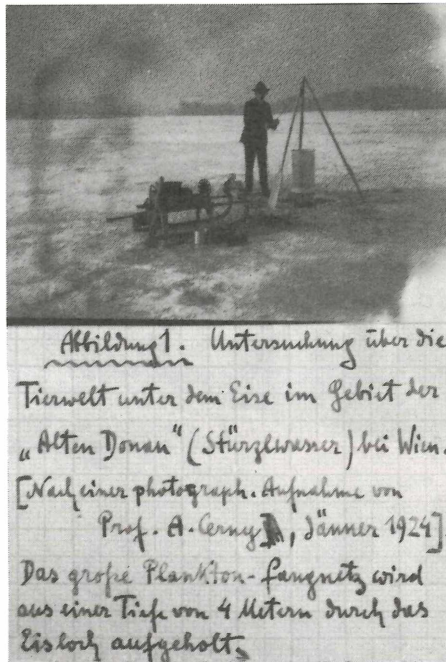 Abbildung 1. Untersuchung über die
Tierwelt unter dem Eise im Gebiet der
„Alten Donau“ (Stürzlwasser) bei Wien.
[Nach einer photograph. Aufnahme von
Prof. A. Cerny, Jänner 1924].
Das große Plankton-Fangnetz wird
aus einer Tiefe von 4 Metern durch das
Eisloch aufgeholt.